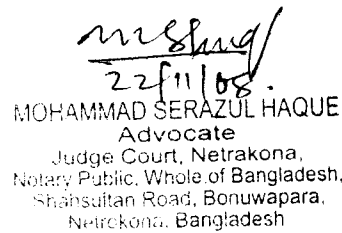 22/11/08.
MOHAMMAD SERAZUL HAQUE
Advocate
Judge Court, Netrakona,
Notary Public, Whole of Bangladesh,
Shahsultan Road, Bonuwapara,
Netrokona, Bangladesh